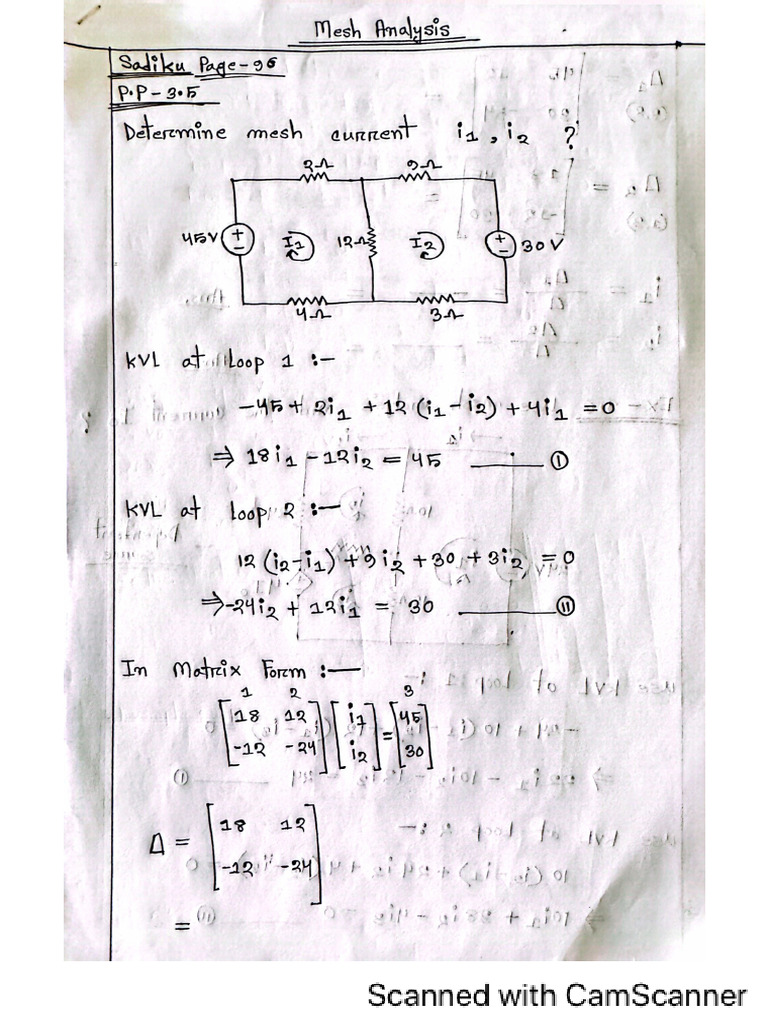 Mesh Analysis
Sadiku Page-96
P.P-3.5
Determine mesh current i1, i2 ?
2Ω 9Ω
45V + - I1 12Ω I2 + - 30V
4Ω 3Ω
KVL at Loop 1 :-
-45 + 2i1 + 12 (i1 - i2) + 4i1 = 0
⇒ 18i1 - 12i2 = 45 ______ (I)
KVL at Loop 2 :-
12 (i2 - i1) + 9i2 + 30 + 3i2 = 0
⇒ -24i2 + 12i1 = 30 ______ (II)
In Matrix Form :-
1 2 3
[18 12] [i1] = [45]
[-12 -24] [i2] [30]
Δ = [18 12]
[-12 -24]
=
Scanned with CamScanner